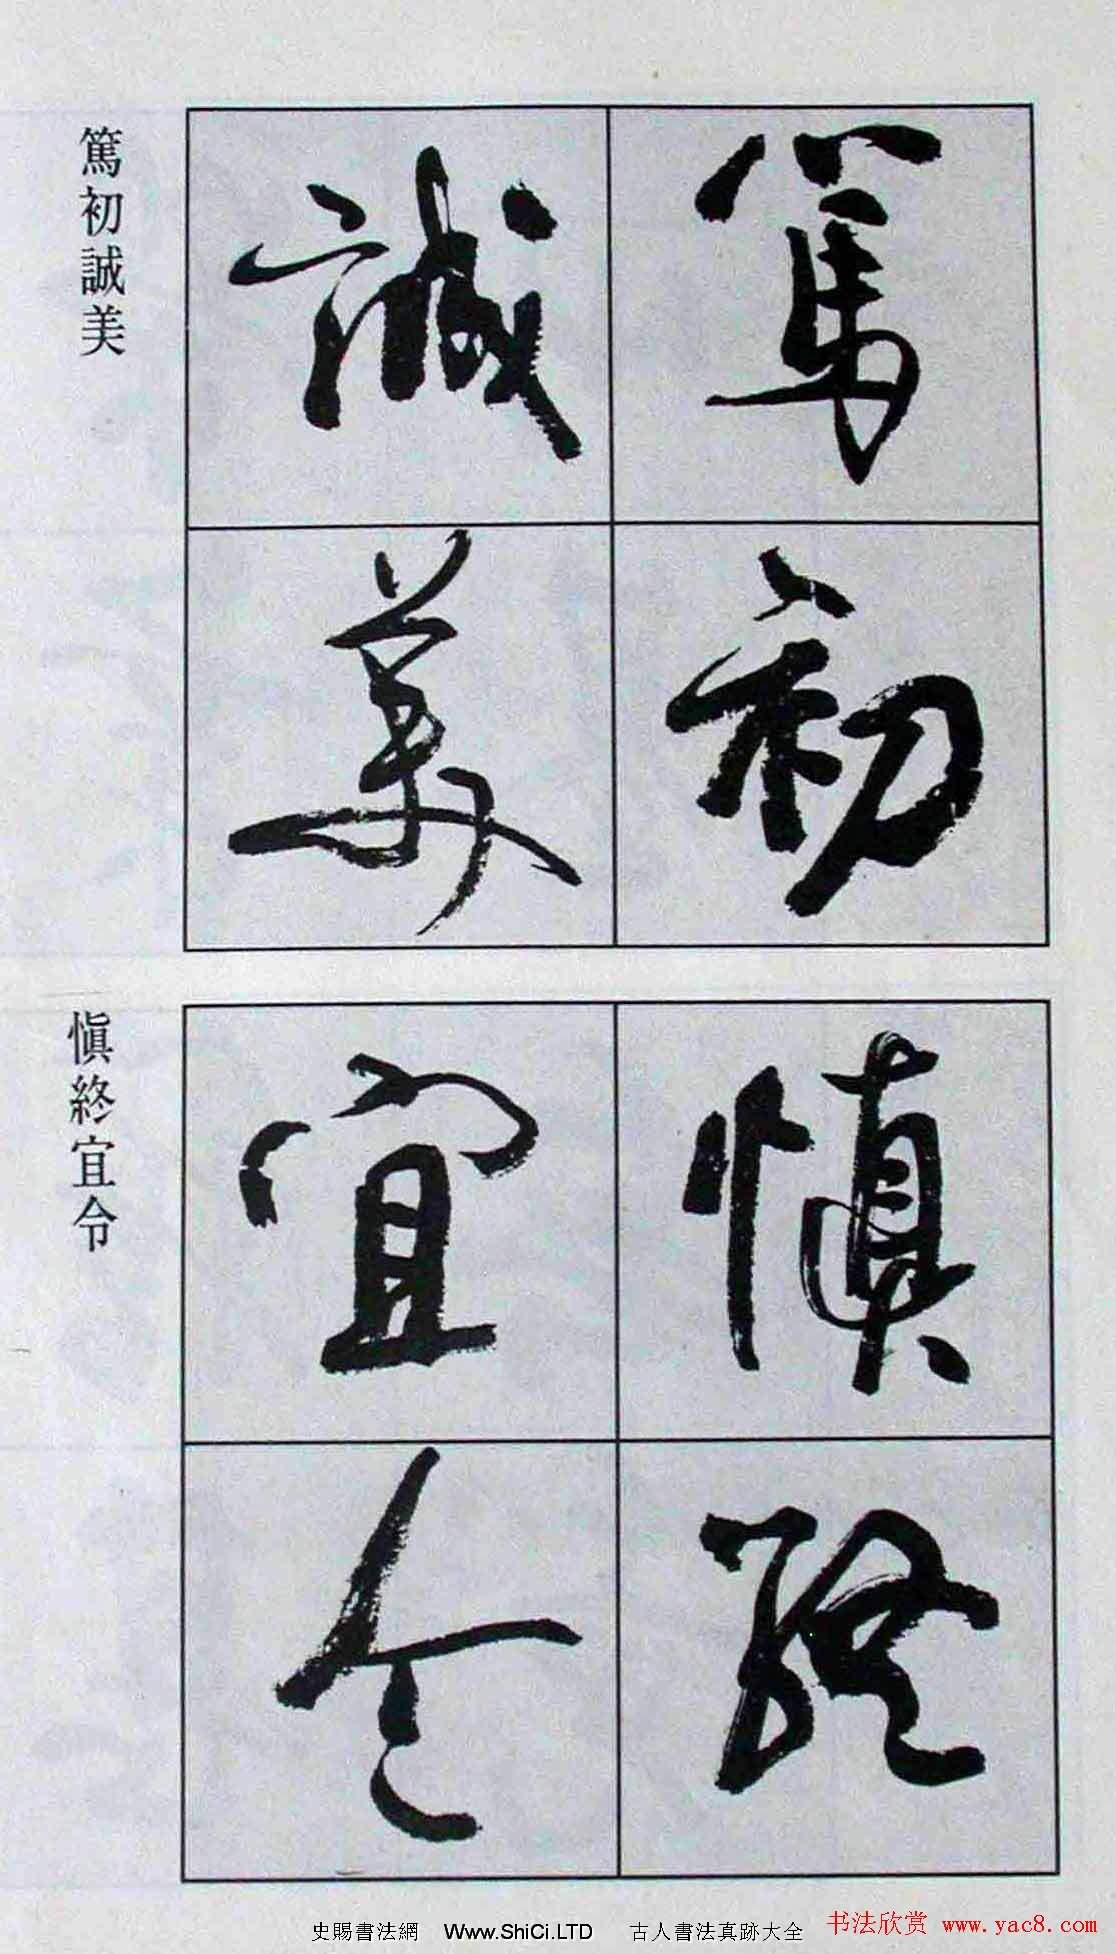 篤初
誠美
篤初誠美
慎終
宜令
慎終宜令
史賜書法網 Www.ShiCi.LTD 古人書法真跡大全
书法欣赏 www.yac8.com